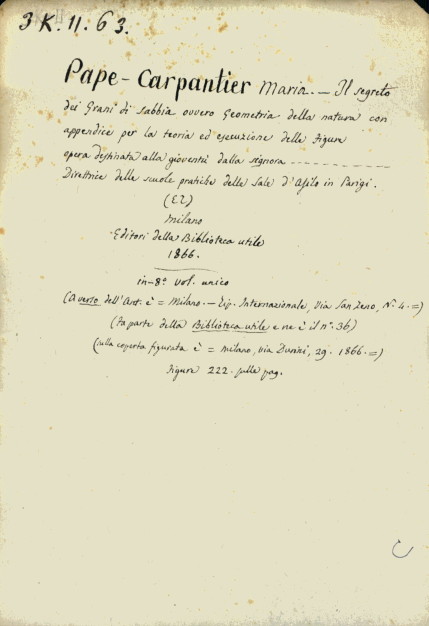 3 K. 11. 63.
Pape-Carpantier Maria. — Il segreto
dei Grani di sabbia ovvero Geometria della natura con
appendice per la teoria ed esecuzione delle Figure
opera destinata alla gioventù dalla signora
Direttrice delle scuole pratiche delle Sale d'Asilo in Parigi.
Milano
Editori della Biblioteca utile
1866.
in-8° vol. unico
(A verso dell'Ant. è = Milano. — Tip. Internazionale, Via San Zeno, N° 4. =)
(Fa parte della Biblioteca utile e ne è il n°. 36)
(sulla coperta figurata è = Milano, via Durini, 29. 1866. =)
Figure 222. sulle pag.